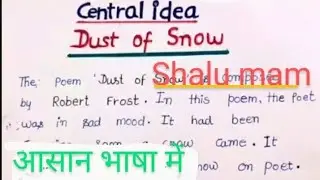 Central idea
Dust of Snow
Shalu mam
The poem 'Dust of Snow is composed
by Robert Frost. In this poem, the poet
was in sad mood. It had been
came. It
आसान भाषा में
on poet.